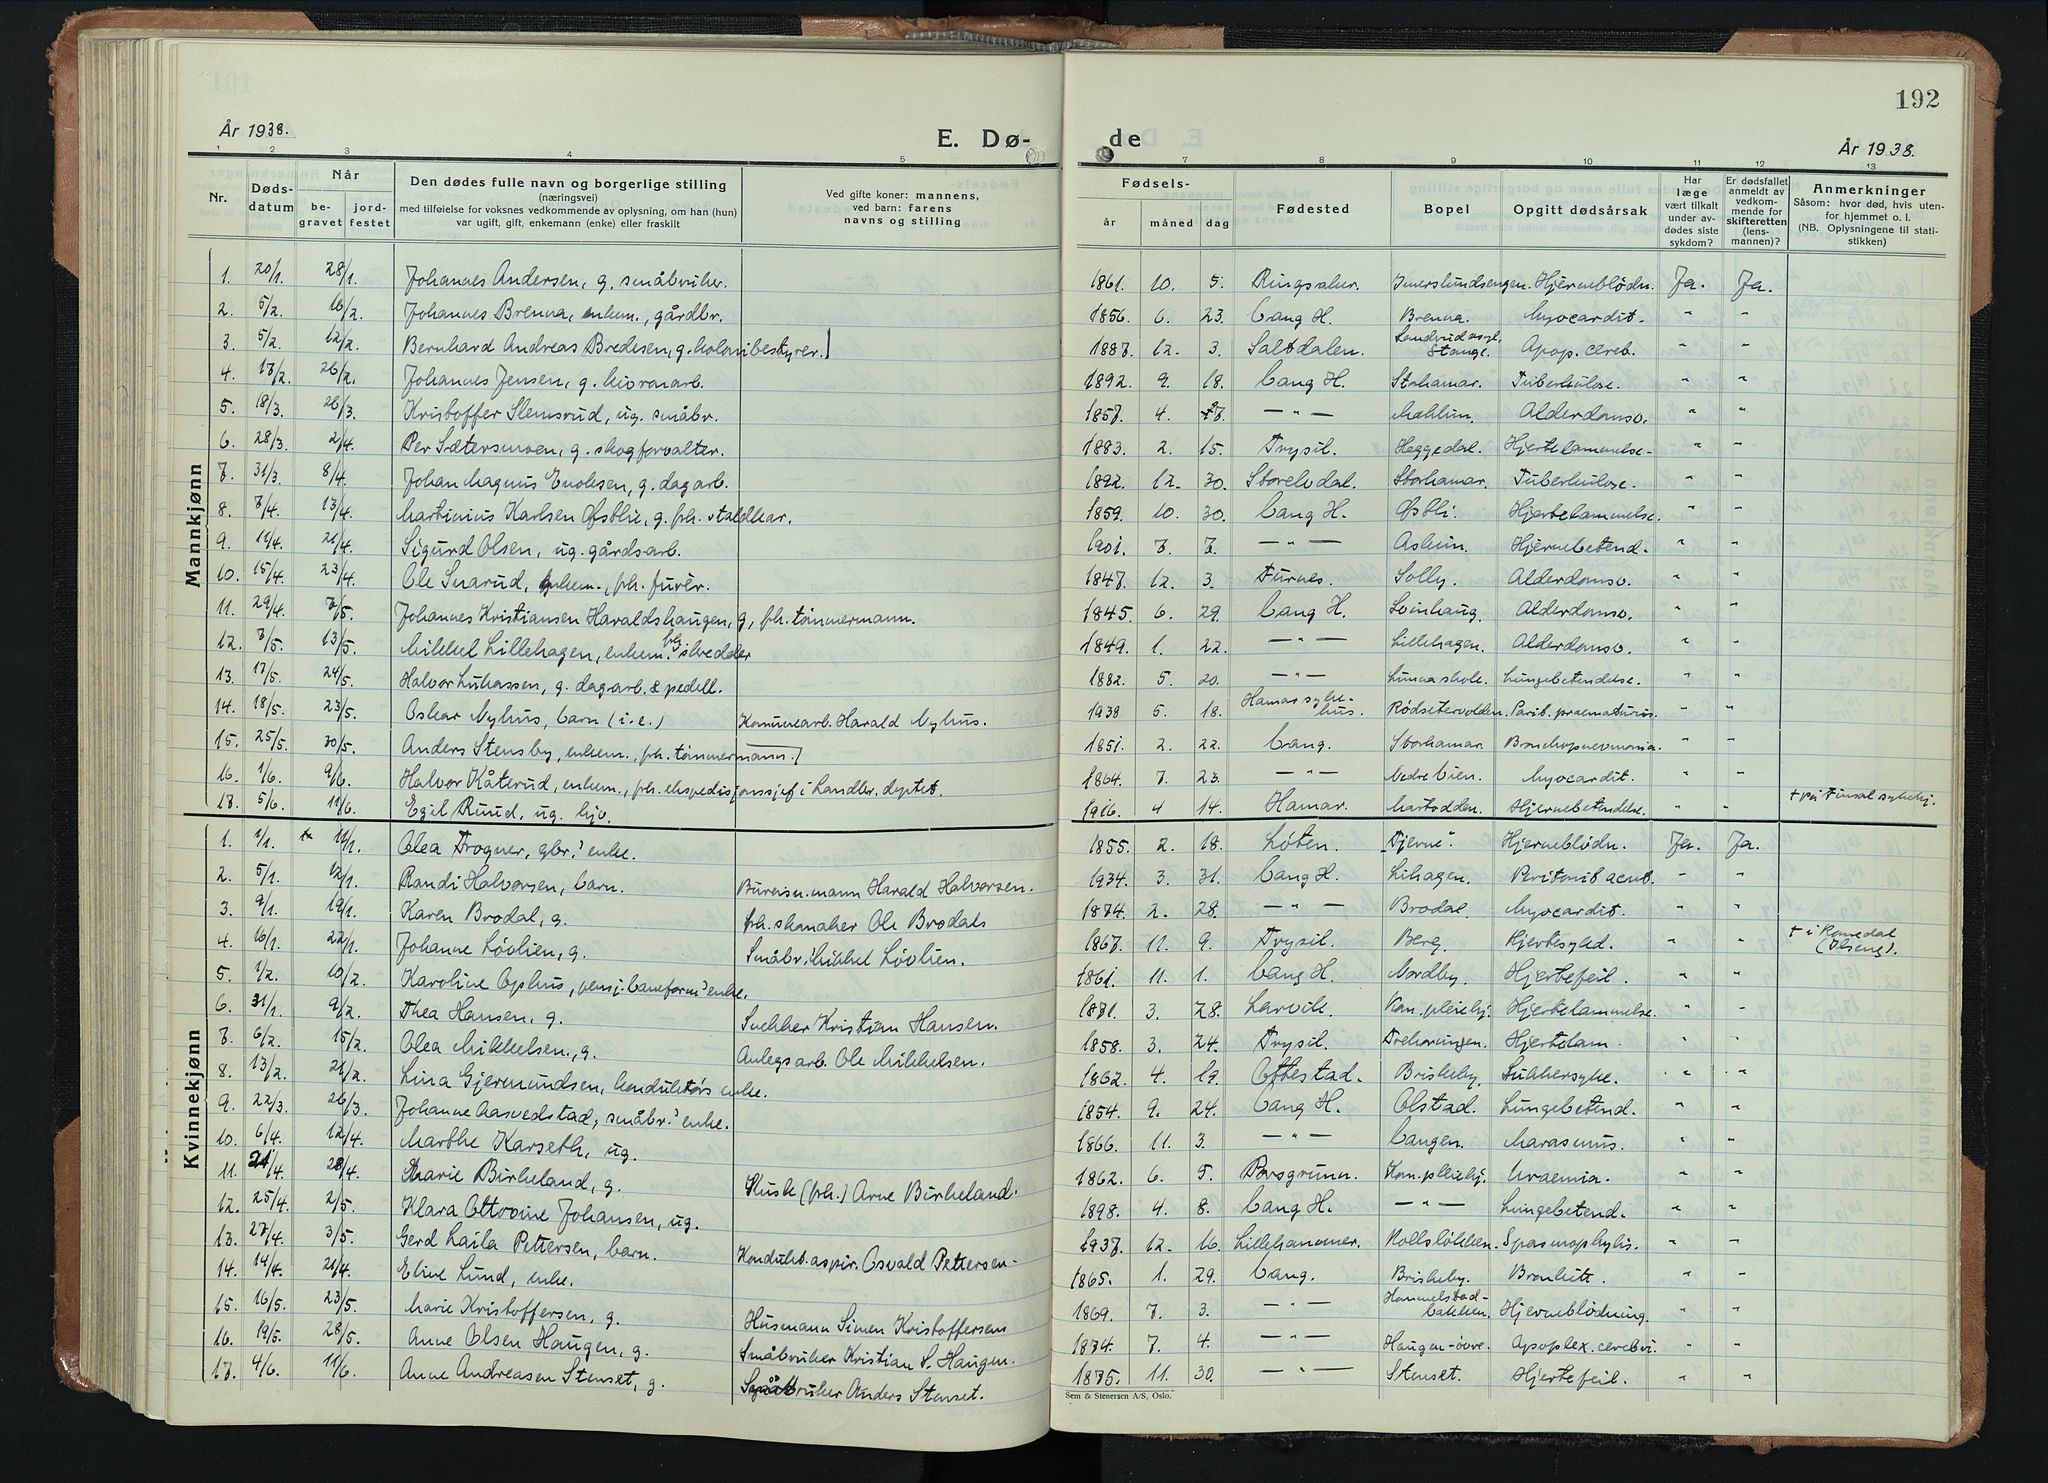 År 1938.
E. Dø-
1 2 3 4 5
Nr. Døds-datum Når be-gravet jord-festet Den dødes fulle navn og borgerlige stilling (næringsvei) med tilføielse for voksnes vedkommende av oplysning, om han (hun) var ugift, gift, enkemann (enke) eller fraskilt Ved gifte koner: mannens, ved barn: farens navns og stilling
Mannkjønn
1. 20/1. 28/1. Johannes Andersen, g. småbruker.
2. 5/2. 16/2. Johannes Brenna, enkem., gårdbr.
3. 5/2. 12/2. Bernhard Andreas Bredesen, g. kolonibestyrer.
4. 17/2. 26/2. Johannes Jensen, g.
5. 18/3. 26/3. Kristoffer Slemsrud, ug. småbr.
6. 28/3. 2/4. Per Sætersmoen, g. skogforvalter.
7. 31/3. 8/4. Johan Magnus Enoksen, g. dagarb.
8. 7/4. 13/4. Martinius Karlsen Østlie, g. fhv. staldkar.
9. 14/4. 21/4. Sigurd Olsen, ug. gårdsarb.
10. 15/4. 23/4. Ole Snarud, enkem., fhv. furér.
11. 29/4. 7/5. Johannes Kristiansen Haraldshaugen, g, fhv. tømmermann.
12. 7/5. 13/5. Mikkel Lillehagen, enkem. fhv. skredder
13. 17/5. 24/5. Halvor Lukassen, g. dagarb. & pedell.
14. 18/5. 23/5. Oskar Nyhus, barn (i.e.) Kommunearb. Harald Nyhus.
15. 25/5. 30/5. Anders Stensby, enkem., fhv. tømmermann.
16. 1/6. 9/6. Halvor Kåterud, enkem., fhv. ekspedisjonssjef i Landbr. deptet.
17. 5/6. 11/6. Egil Ruud, ug.
Kvinnekjønn
1. 1/1. 11/1. Olea Trogner, gbr.' enke.
2. 5/1. 12/1. Randi Halvorsen, barn. Bureisn. mann Harald Halvorsen.
3. 9/1. 19/1. Karen Brodal, g. fhv. skomaker Ole Brodals
4. 16/1. 22/1. Johanne Løvlien, g. Småbr. Mikkel Løvlien.
5. 1/2. 10/2. Karoline Ophus, pensj. baneform' enke.
6. 31/1. 9/2. Thea Hansen, g. Snekker Kristian Hansen.
7. 6/2. 15/2. Olea Mikkelsen, g. Anlegsarb. Ole Mikkelsen.
8. 13/2. 21/2. Lina Gjermundsen, konduktørs enke.
9. 22/3. 26/3. Johanne Aasvedstad, småbr.' enke.
10. 6/4. 12/4. Marthe Karseth, ug.
11. 21/4. 28/4. Marie Birkeland, g. Kusk (fhv.) Arne Birkeland.
12. 25/4. 2/5. Klara Ottovine Johansen, ug.
13. 27/4. 3/5. Gerd Laila Pettersen, barn. Kondukt. aspir. Osvald Pettersen
14. 14/4. 21/4. Eline Lund, enke.
15. 16/5. 23/5. Marie Kristoffersen, g. Husmann Simen Kristoffersens
16. 19/5. 28/5. Anne Olsen Haugen, g. Småbruker Kristian S. Haugen.
17. 4/6. 11/6. Anne Andreasen Stenset, g. Småbruker Anders Stenset.
192
de
År 1938.
7 8 9 10 11 12 13
Fødsels- år måned dag Fødested Bopel Opgitt dødsårsak Har læge vært tilkalt under av-dødes siste sykdom? Er dødsfallet anmeldt av vedkom-mende for skifteretten (lens-mannen)? Anmerkninger Såsom: hvor død, hvis uten-for hjemmet o. l. (NB. Oplysningene til stati-stikken)
1861. 10. 5. Ringsaker. Imerslundsengen. Hjerneblødn. Ja. Ja.
1856. 6. 23. Vang H. Brenna. Myocardit. " "
1887. 12. 3. Saltdalen. Sandrud asyl, Stange. Apop. cereb. " "
1892. 9. 18. Vang H. Stohamar. Tuberkulose. " "
1857. 4. — " — Alderdomsv. " "
1883. 2. 15. Trysil. Heggedal. Hjertelammelse. " "
1892. 12. 30. Storelvdal. Storhamar. Tuberkulose. " "
1859. 10. 30. Vang H. Østli. Hjertelammelse. " "
1901. 7. 7. — " — Askim. Hjernebetend. " "
1847. 12. 3. Furnes. Solly. Alderdomsv. " "
1845. 6. 29. Vang H. Svinhaug. Alderdomsv. " "
1849. 1. 22. — " — Lillehagen. Alderdomsv. " "
1882. 5. 20. — " — Lunna skole. Lungebetendelse. " "
1938 5. 18. Hamar syke-hus. Rødsetervolden. Part. praematurus. " "
1851. 2. 22. Vang. Storhamar. Bronchopneumonia. " "
1864. 7. 23. — " — Nedre Vien. Myocardit. " "
1916. 4 14. Hamar. Martodden. Hjernebetendelse. " " + på Finsal sykehj.
1855. 2. 18. Løten. "Tjerne". Hjerneblødn. Ja. Ja.
1934. 3. 31. Vang H. Lihagen. Peritonit acut. " "
1874. 2. 28. — " — Brodal. Myocardit. " "
1867. 11. 9. Trysil. Berg. Hjertesykd. " " + i Romedal (Ilseng).
1861. 11. 1. Vang H. Nordby. Hjertefeil. " "
1871. 3. 28. Larvik. Kom. pleiehj. Hjertelammelse. " "
1858. 3. 24. Trysil. Trehørningen. Hjertelam. " "
1862. 4. 19. Ottestad. Briskeby. Sukkersyke. " "
1854. 9. 24. Vang H. Olstad. Lungebetend. " "
1866. 11. 3. — " — Vangen. Marasmus. " "
1862. 6. 5. Porsgrunn. Kom. pleiehj. Uraemia. " "
1898. 4. 8. Vang H. — " — Lungebetend. " "
1937. 12. 16. Lillehammer. Kolls løkken. Spasmophylis. " "
1865. 1. 29. Vang. Briskeby. Bronkitt. " "
1869. 7. 3. — " — Hommelstad-bakken. Hjerneblødning. " "
1874. 7. 4. — " — Haugen-øvre. Apoplex. cerebri. " "
1875. 11. 30. — " — Stenset. Hjertefeil. " "
Sem & Stenersen A/S, Oslo.